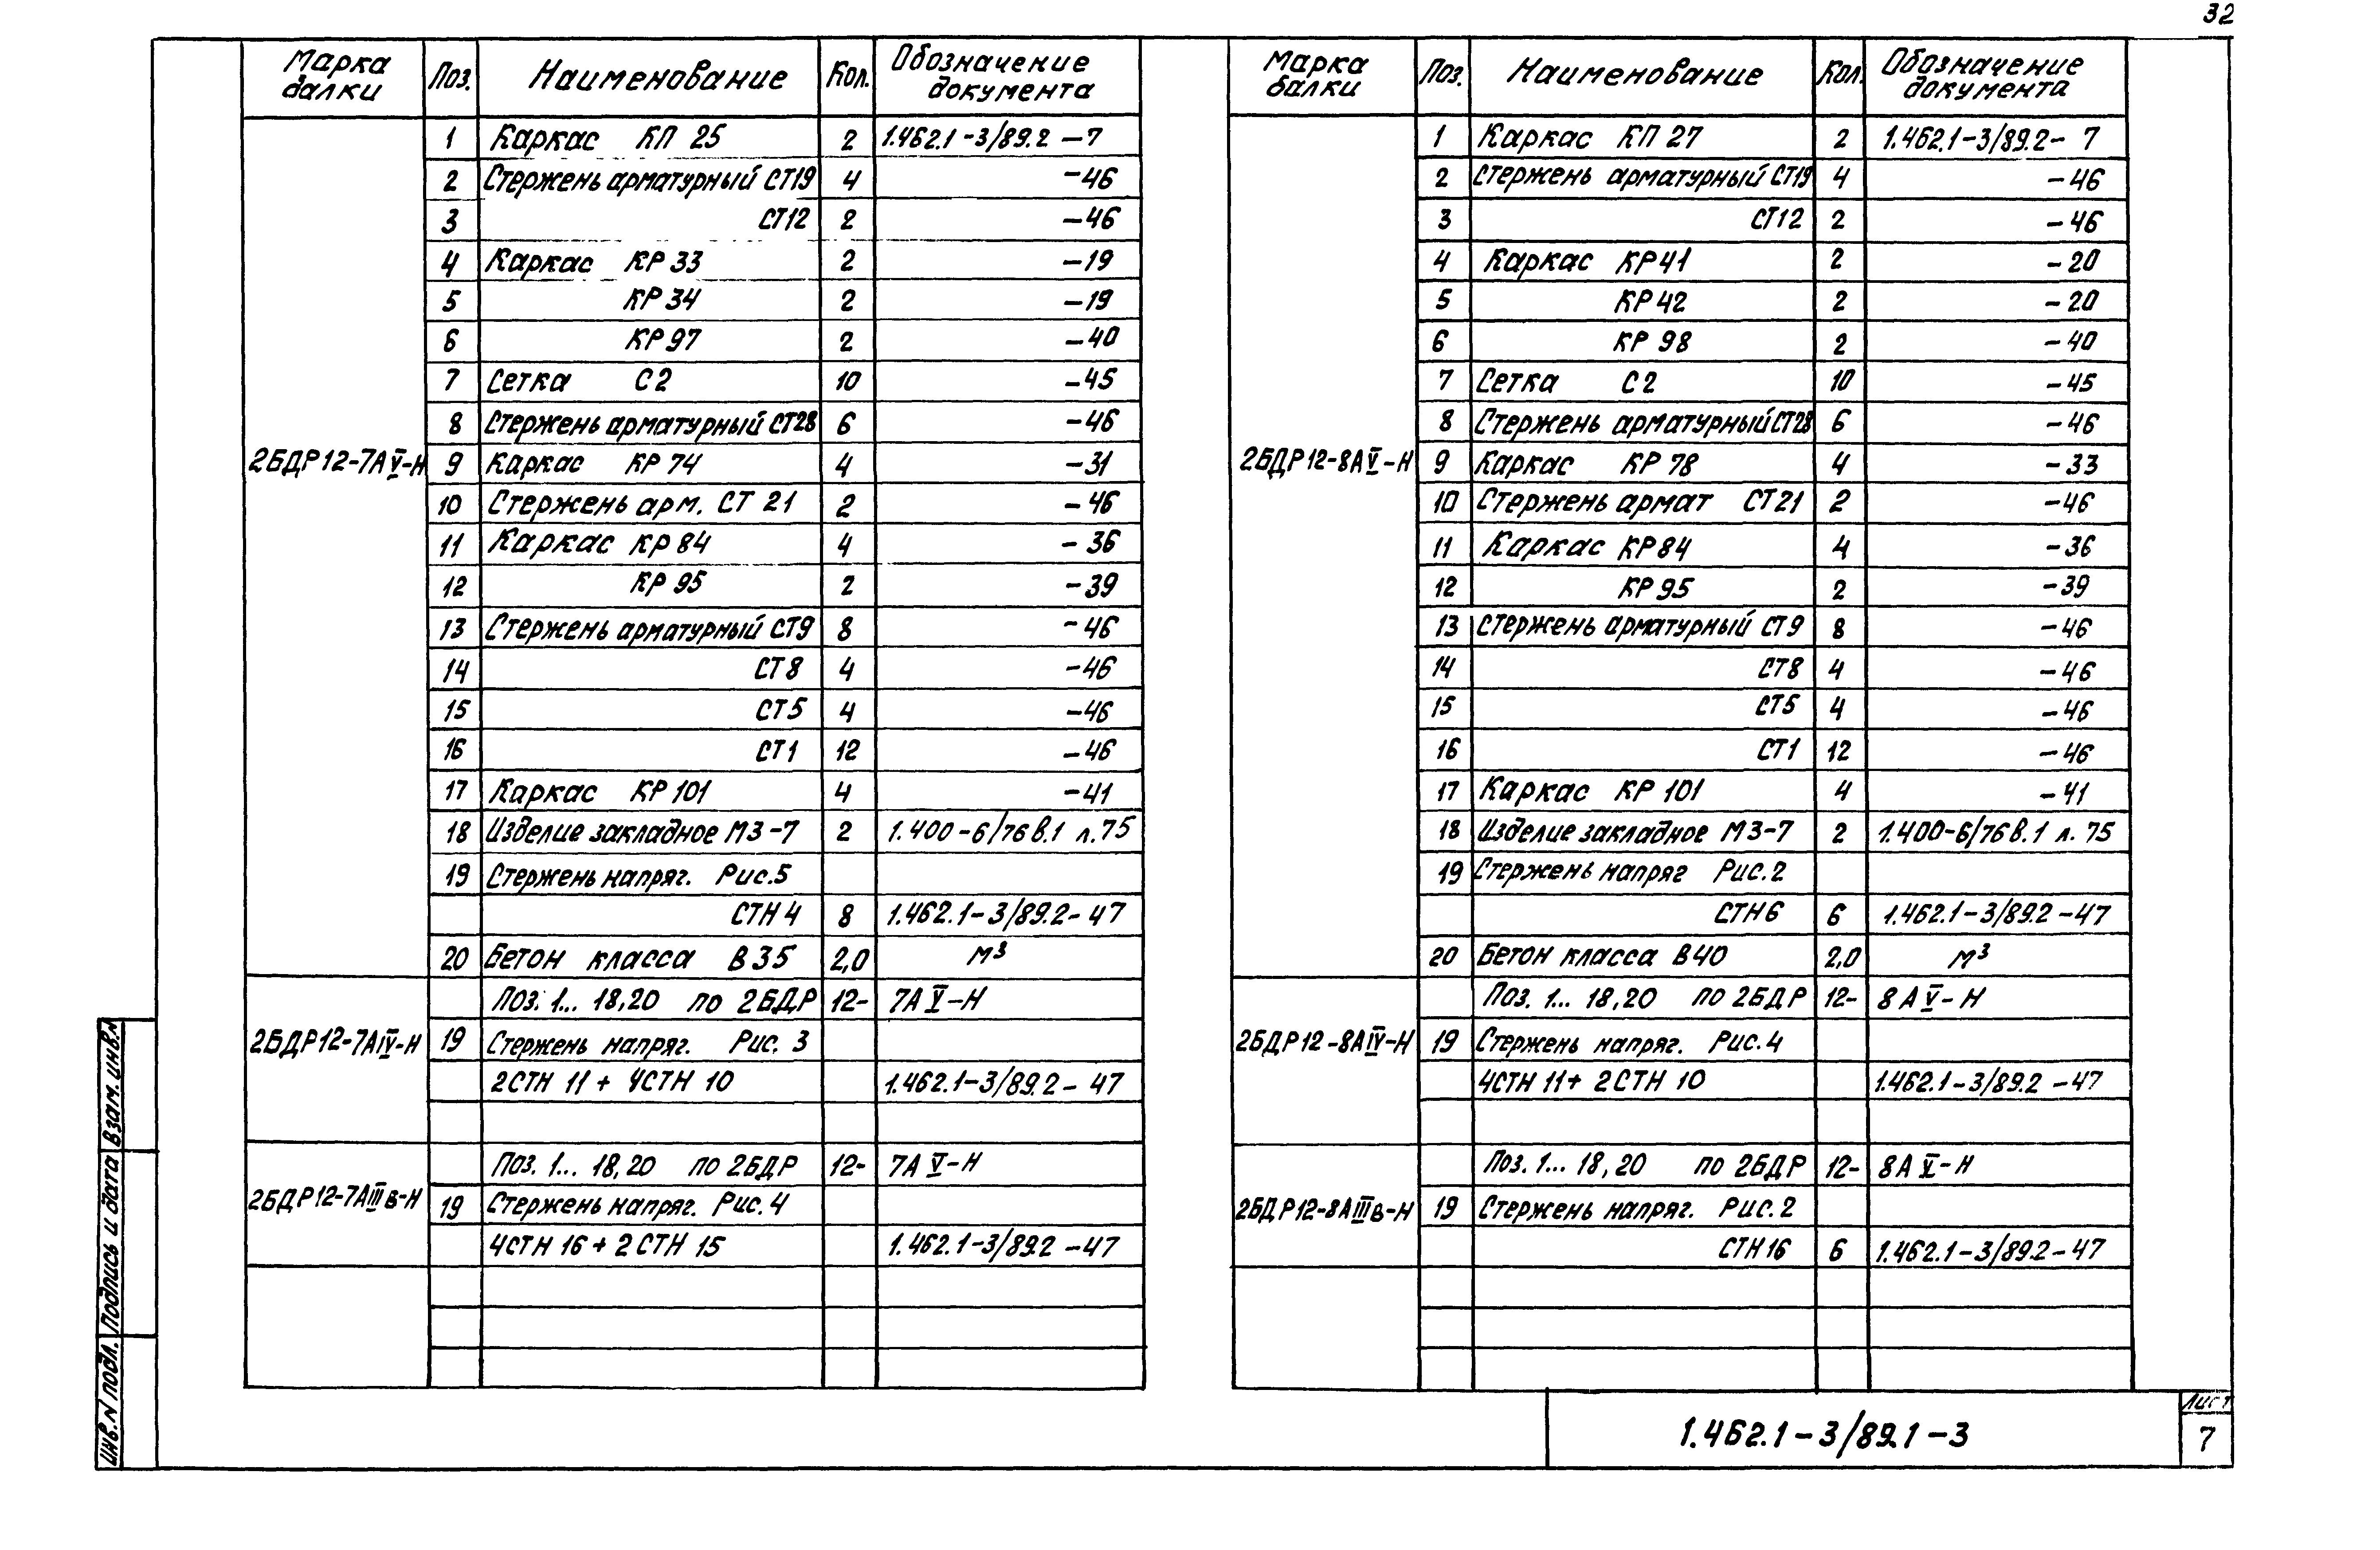 32
Марка балки Поз. Наименование Кол. Обозначение документа
2БДР12-7АV-Н
1 Каркас КП 25 2 1.462.1-3/89.2-7
2 Стержень арматурный СТ19 4 -46
3 СТ12 2 -46
4 Каркас КР 33 2 -19
5 КР 34 2 -19
6 КР 97 2 -40
7 Сетка С2 10 -45
8 Стержень арматурный СТ28 6 -46
9 Каркас КР 74 4 -31
10 Стержень арм. СТ 21 2 -46
11 Каркас КР 84 4 -36
12 КР 95 2 -39
13 Стержень арматурный СТ9 8 -46
14 СТ8 4 -46
15 СТ5 4 -46
16 СТ1 12 -46
17 Каркас КР 101 4 -41
18 Изделие закладное МЗ-7 2 1.400-6/76 в.1 л.75
19 Стержень напряг. Рис.5
СТН4 8 1.462.1-3/89.2-47
20 Бетон класса В35 2,0 м³
2БДР12-7АIV-Н
Поз. 1... 18,20 по 2БДР 12- 7АV-Н
19 Стержень напряг. Рис. 3
2СТН 11 + 4СТН 10 1.462.1-3/89.2-47
2БДР12-7АIIIв-Н
Поз. 1... 18,20 по 2БДР 12- 7АV-Н
19 Стержень напряг. Рис.4
4СТН 16 + 2СТН 15 1.462.1-3/89.2-47
Марка балки Поз. Наименование Кол. Обозначение документа
2БДР12-8АV-Н
1 Каркас КП 27 2 1.462.1-3/89.2-7
2 Стержень арматурный СТ19 4 -46
3 СТ12 2 -46
4 Каркас КР41 2 -20
5 КР42 2 -20
6 КР 98 2 -40
7 Сетка С2 10 -45
8 Стержень арматурный СТ28 6 -46
9 Каркас КР 78 4 -33
10 Стержень армат СТ21 2 -46
11 Каркас КР84 4 -36
12 КР95 2 -39
13 Стержень арматурный СТ9 8 -46
14 СТ8 4 -46
15 СТ5 4 -46
16 СТ1 12 -46
17 Каркас КР 101 4 -41
18 Изделие закладное МЗ-7 2 1.400-6/76 в.1 л. 75
19 Стержень напряг Рис.2
СТН6 6 1.462.1-3/89.2-47
20 Бетон класса В40 2,0 м³
2БДР12-8АIV-Н
Поз. 1... 18,20 по 2БДР 12- 8АV-Н
19 Стержень напряг. Рис.4
4СТН 11 + 2СТН 10 1.462.1-3/89.2-47
2БДР12-8АIIIв-Н
Поз. 1... 18,20 по 2БДР 12- 8АV-Н
19 Стержень напряг. Рис.2
СТН16 6 1.462.1-3/89.2-47
Инв.N подл. Подпись и дата Взам. инв.N
1.462.1-3/89.1-3
Лист
7